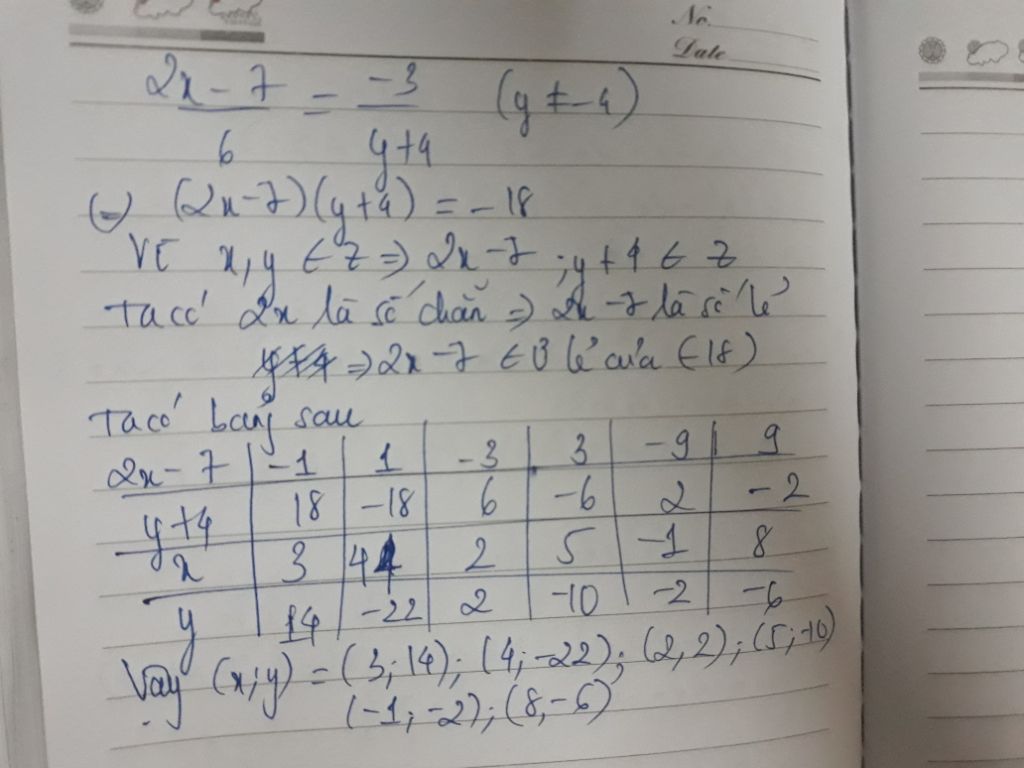 No.
Date
2x - 7 / 6 = -3 / y+4 (y ≠ -4)
(=) (2x-7)(y+4) = -18
Vì x,y ∈ Z => 2x-7 ; y+4 ∈ Z
Ta có 2x là số chẵn => 2x-7 là số lẻ
y+4 => 2x-7 ∈ Ư lẻ của (-18)
Ta có bảng sau
2x-7 | -1 | 1 | -3 | 3 | -9 | 9
y+4 | 18 | -18 | 6 | -6 | 2 | -2
x | 3 | 4 | 2 | 5 | -1 | 8
y | 14 | -22 | 2 | -10 | -2 | -6
Vậy (x;y) = (3;14); (4;-22); (2,2); (5;-10)
(-1;-2); (8,-6)